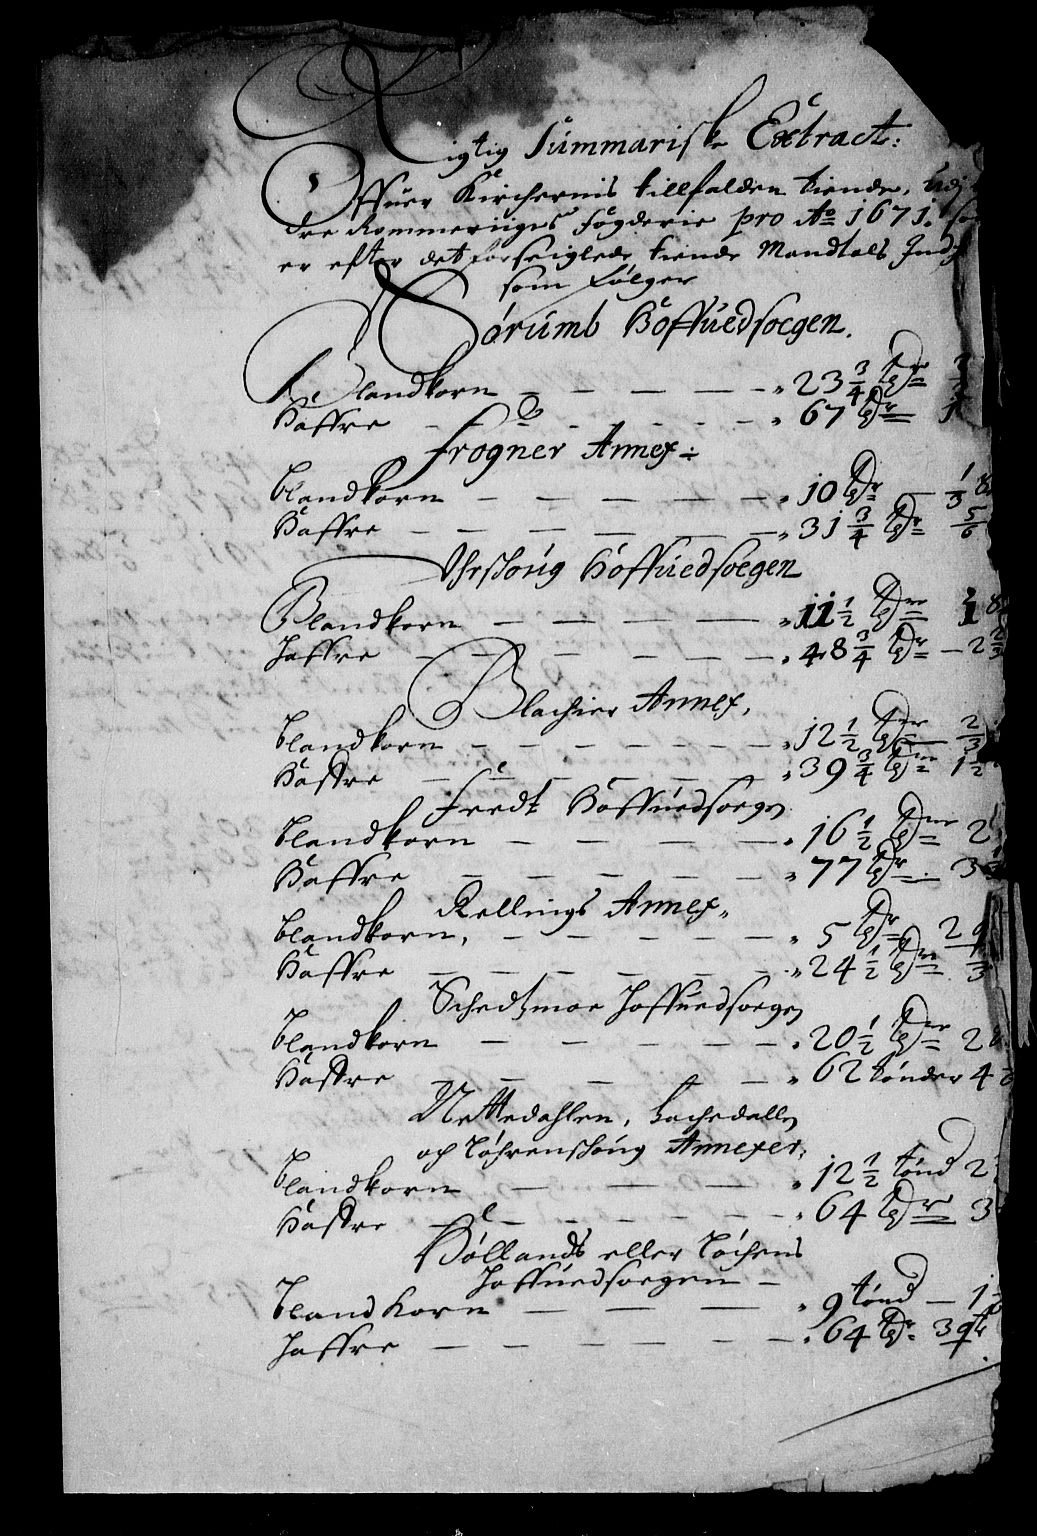 Rigtig Summariske Extract:
Offuer Kirchernis tillfalden tiende, Udj
dre Rommeriiges fögderie pro Ao 1671. som
er efter det forseiglede tiende Mandtals Ind
som følger
Sørumb Hoffuedsoegen.
Blandkorn - - - - - 23 3/4 tdr
Haffre - - - - - 67 tdr 1
Frogner Annex:
blandkorn - - - - - 10 tdr - 1/3 8
Haffre - - - - - 31 3/4 tdr 5/6
Uhrschoug Hoffuedsoegen
Blandkorn - - - - - 11 1/2 tdr
Haffre - - - - - 48 3/4 tdr - 2 2/3
Blachier Annex,
blandkorn - - - - - 12 1/2 tdr 2/3
Haffre - - - - - 39 3/4 tdr 1 1/2
Feedt Hoffuedsoegn
blandkorn - - - - - 16 1/2 tdr 2
Haffre - - - - - 77 tdr. 3
Rellings Annex,
blandkorn, - - - - - 5 tdr 2 q
Haffre - - - - - 24 1/2 tdr 1/3
Schedtzmoe Hoffuedsoegn
blandkorn - - - - - 20 1/2 tdr 2
Haffre - - - - - 62 tønder 4
Nettedahlen, hachedallen
och Løhrenschoug Annexer,
blandkorn - - - - 12 1/2 tønd 2
Haffre - - - - - 64 tdr 3
Høllands eller Løchens
Hoffuedsoegen -
blandkorn - - - - 9 tønd - 1
Haffre - - - - - 64 tdr. 3 qtr